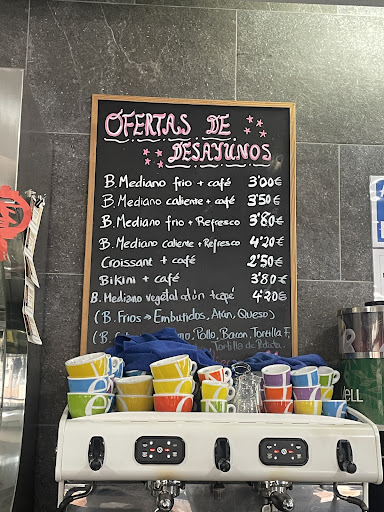 OFERTAS DE
DESAYUNOS
B. Mediano frio + café 3'00€
B. Mediano caliente + café 3'50€
B. Mediano frio + Refresco 3'80€
B. Mediano caliente + Refresco 4'20€
Croissant + café 2'50€
Bikini + café 3'80€
B. Mediano vegetal atún + café 4'20€
(B. Frios → Embutidos, Atún, Queso)
(B. Lomo, Pollo, Bacon, Tortilla F,
Tortilla de Patata.
ELL